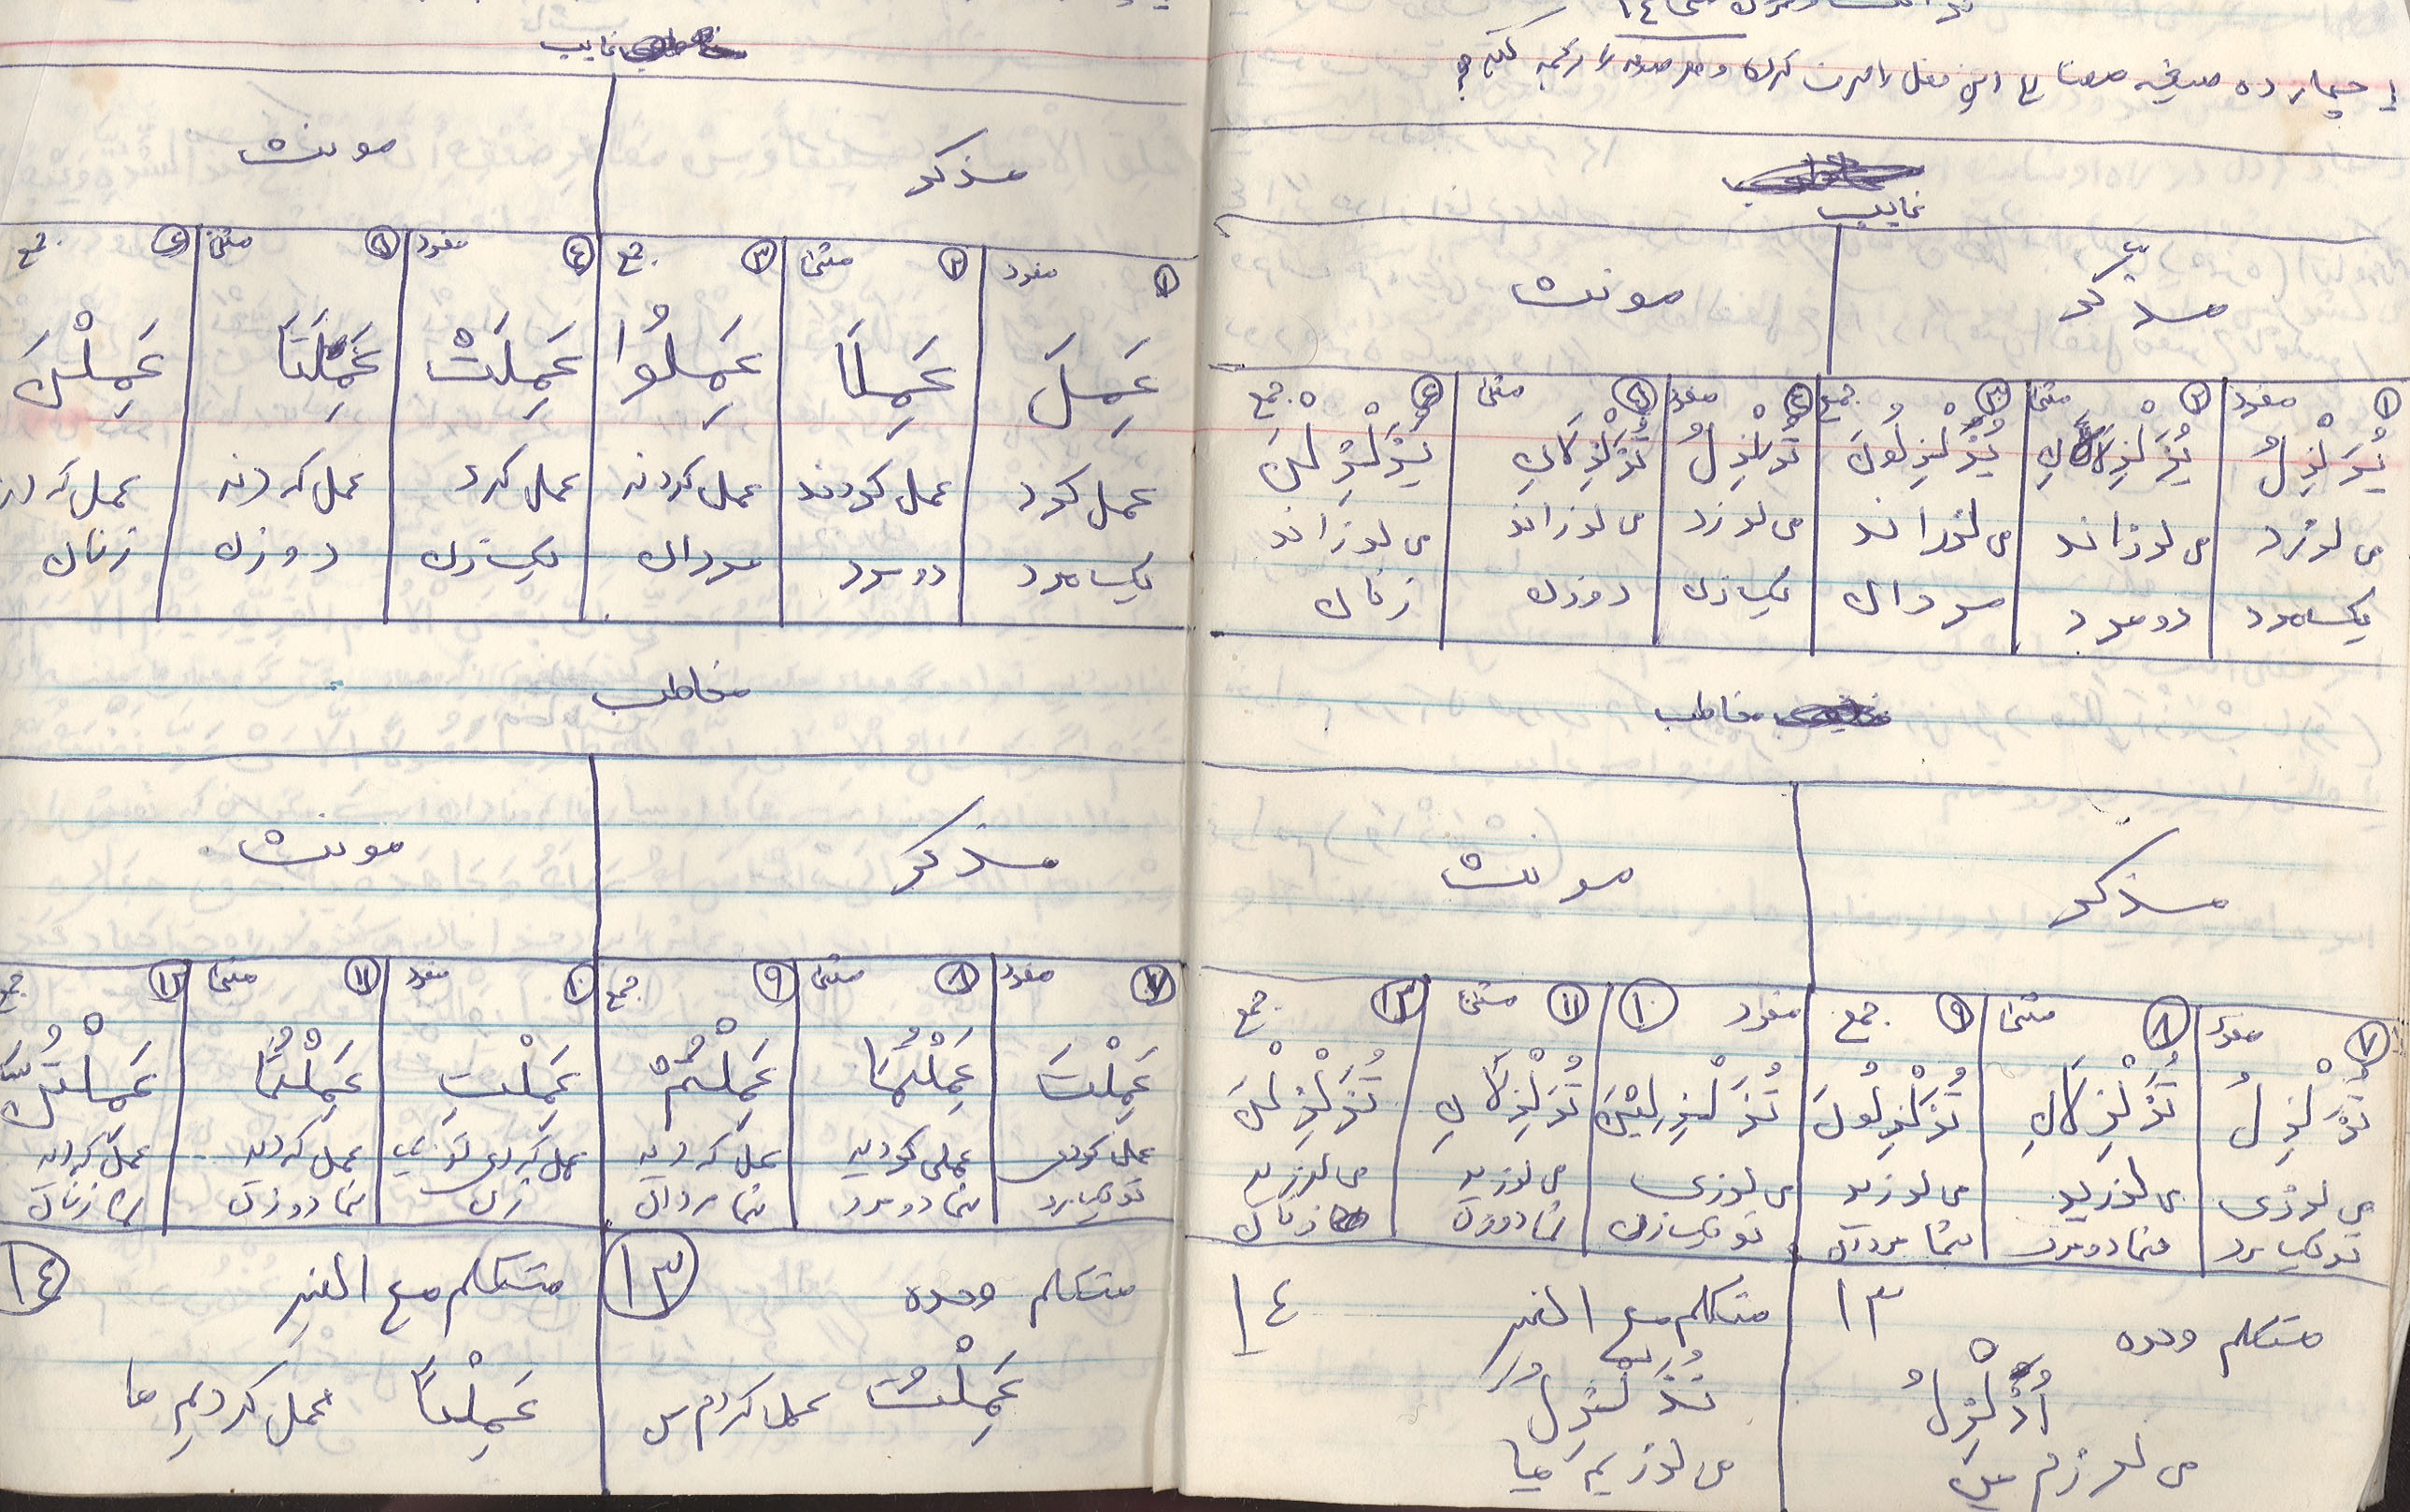 چهارده صیغه مضارع این فعل را صرف کرده و هر صیغه را ترجمه کنید؟
غایب
مذکّر مونث
١ مفرد ٢ مثنی ٣ جمع ٤ مفرد ٥ مثنی ٦ جمع
يُزَلْزِلُ يُزَلْزِلَانِ يُزَلْزِلُونَ تُزَلْزِلُ تُزَلْزِلَانِ يُزَلْزِلْنَ
می لرزد می لرزاند می لرزاند می لرزد می لرزاند می لرزاند
یک مرد دو مرد مردان یک زن دو زن زنان
مخاطب
مذکر مونث
٧ مفرد ٨ مثنی ٩ جمع ١٠ مفرد ١١ مثنی ١٢ جمع
تُزَلْزِلُ تُزَلْزِلَانِ تُزَلْزِلُونَ تُزَلْزِلِيْنَ تُزَلْزِلَانِ تُزَلْزِلْنَ
می لرزی می لرزید می لرزید می لرزی می لرزید می لرزید
تو یک مرد شما دو مرد شما مردان تو یک زن شما دو زن زنان
متکلم وحده ١٣ متکلم مع الغیر ١٤
اُزَلْزِلُ نُزَلْزِلُ
می لرزم من می لرزیم ما
غایب
مذکر مونث
١ مفرد ٢ مثنی ٣ جمع ٤ مفرد ٥ مثنی ٦ جمع
عَمِلَ عَمِلَا عَمِلُوا عَمِلَتْ عَمِلَتَا عَمِلْنَ
عمل کرد عمل کردند عمل کردند عمل کرد عمل کردند عمل کردند
یک مرد دو مرد مردان یک زن دو زن زنان
مخاطب
مذکر مونث
٧ مفرد ٨ مثنی ٩ جمع ١٠ مفرد ١١ مثنی ١٢ جمع
عَمِلْتَ عَمِلْتُمَا عَمِلْتُمْ عَمِلْتِ عَمِلْتُمَا عَمِلْتُنَّ
عمل کردی عمل کردید عمل کردید عمل کردی تو یک عمل کردید عمل کردید
تو یک مرد شما دو مرد شما مردان زن شما دو زن شما زنان
متکلم وحده ١٣ متکلم مع الغیر ١٤
عَمِلْتُ عمل کردم من عَمِلْنَا عمل کردیم ما